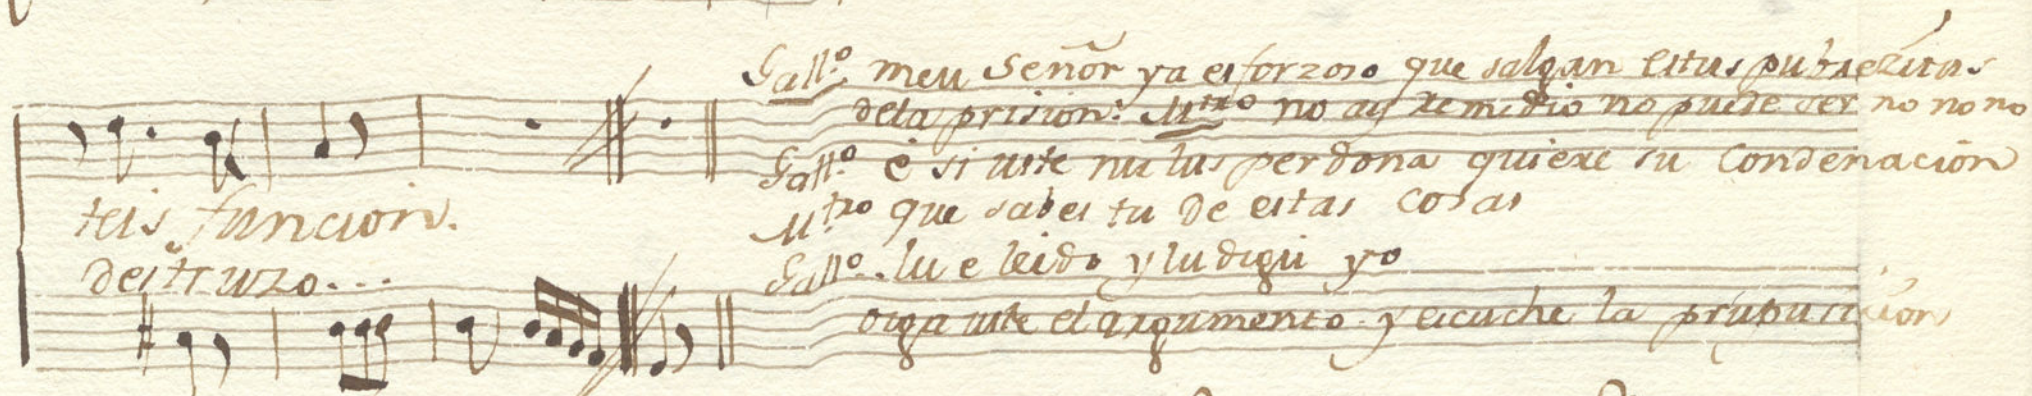 Gall.º meu Señor ya es forzoso que salgan estus pubrezitus
de la prision: Mtro no ay remedio no puede ser no no no
Gall.º é si uste nu lus perdona quiere su Condenación
teis funcion.
Mtro que sabes tu de estas cosas
destruzo...
Gall.º.. lu e leido y lu digu yo
oiga uste el argumento y escuche la prupusición